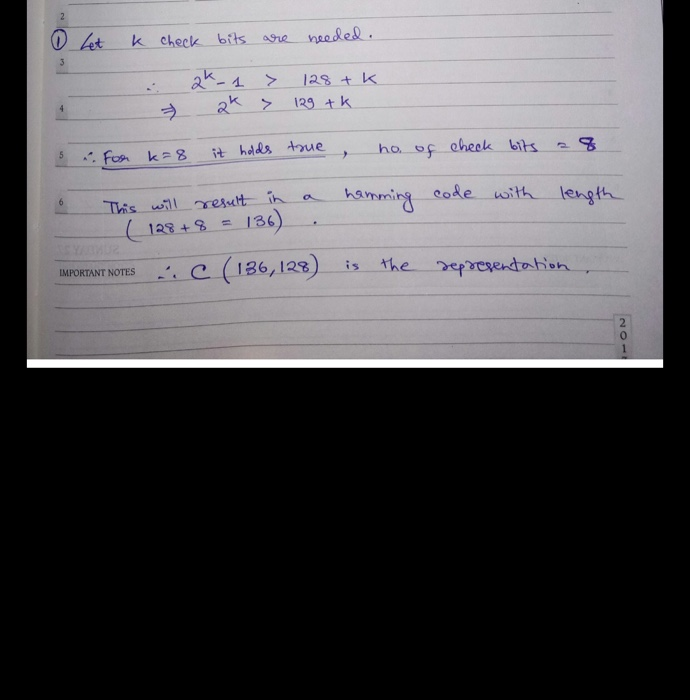 2
① Let k check bits are needed.
3
∴ 2^k - 1 > 128 + k
4 ⇒ 2^k > 129 + k
5 ∴ For k=8 it holds true, no. of check bits = 8
6 This will result in a hamming code with length
(128+8 = 136).
IMPORTANT NOTES ∴ C (136,128) is the representation.
2
0
1